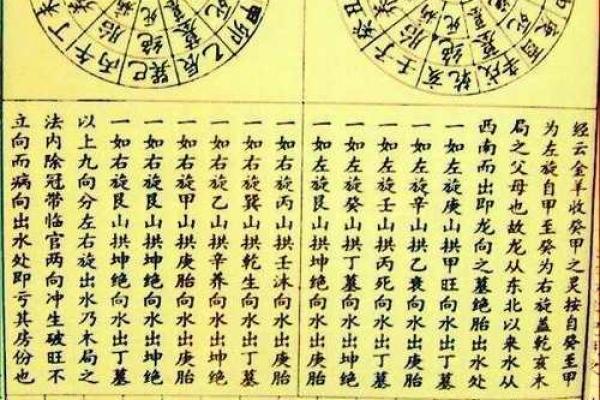 丁午丙巳巽辰乙卯甲
胎绝墓死
子壬亥乾戌辛酉
胎绝墓死
经云金羊收癸甲之灵按自癸至甲
为左旋自甲至癸为右旋盖乾亥木
局之父母也故龙从东北以来水从
西南而出即龙向之墓绝胎出水处
一如左旋庚山拱甲旺向水出庚胎
一如左旋辛山拱乙衰向水出庚胎
一如左旋壬山拱丙死向水出庚胎
一如左旋癸山拱丁墓向水出庚胎
一如左旋艮山拱坤绝向水出庚胎
一如右旋丙山拱壬沐向水出庚胎
一如右旋巽山拱乾生向水出丁墓
一如右旋乙山拱辛养向水出坤绝
一如右旋甲山拱庚胎向水出庚胎
一如右旋艮山拱坤绝向水出坤绝
一如右旋艮山拱坤绝向水出丁墓
以上九向分左右旋出水乃木局之
法内除冠带临官两向冲生破旺不
立向而病向出水处即亏其房份也